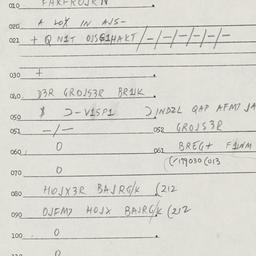 010 FAXFROJRN
020 A LOX IN AJS-
021 + Q N1T OJSG1HAKT /-/-/-/-/-/-
030 +
040 D3R GROJS3R BR1JK
050 $ J-V1SP1 JINDZL QAP AFM7 JA
051 -/- 052 GROJS3R
060 0 061 BREG+ F1NM
(-179030(013
070 0
080 HOJX3R BAJRG/K (212
090 OJEM7 HOJX BAJRG/K (212
100 0
0